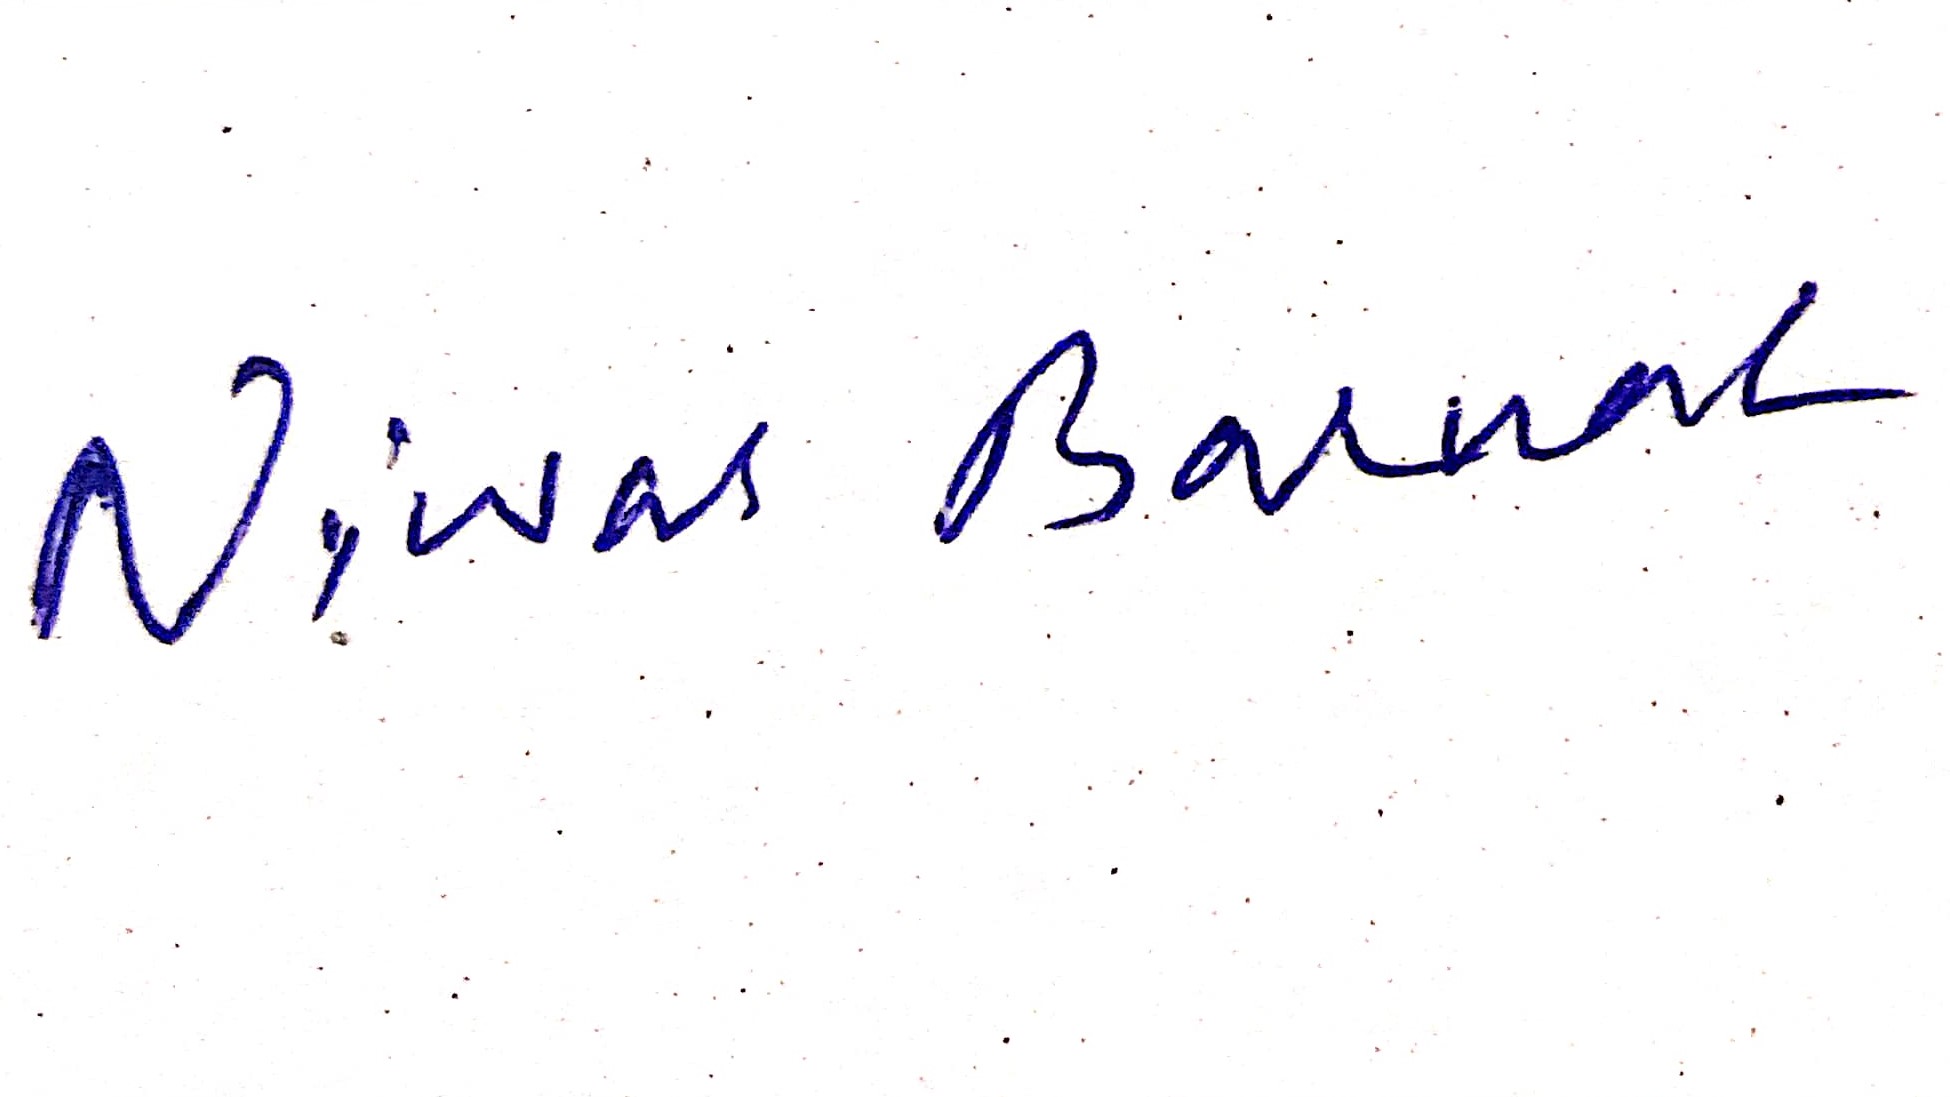 Niwas Barnal